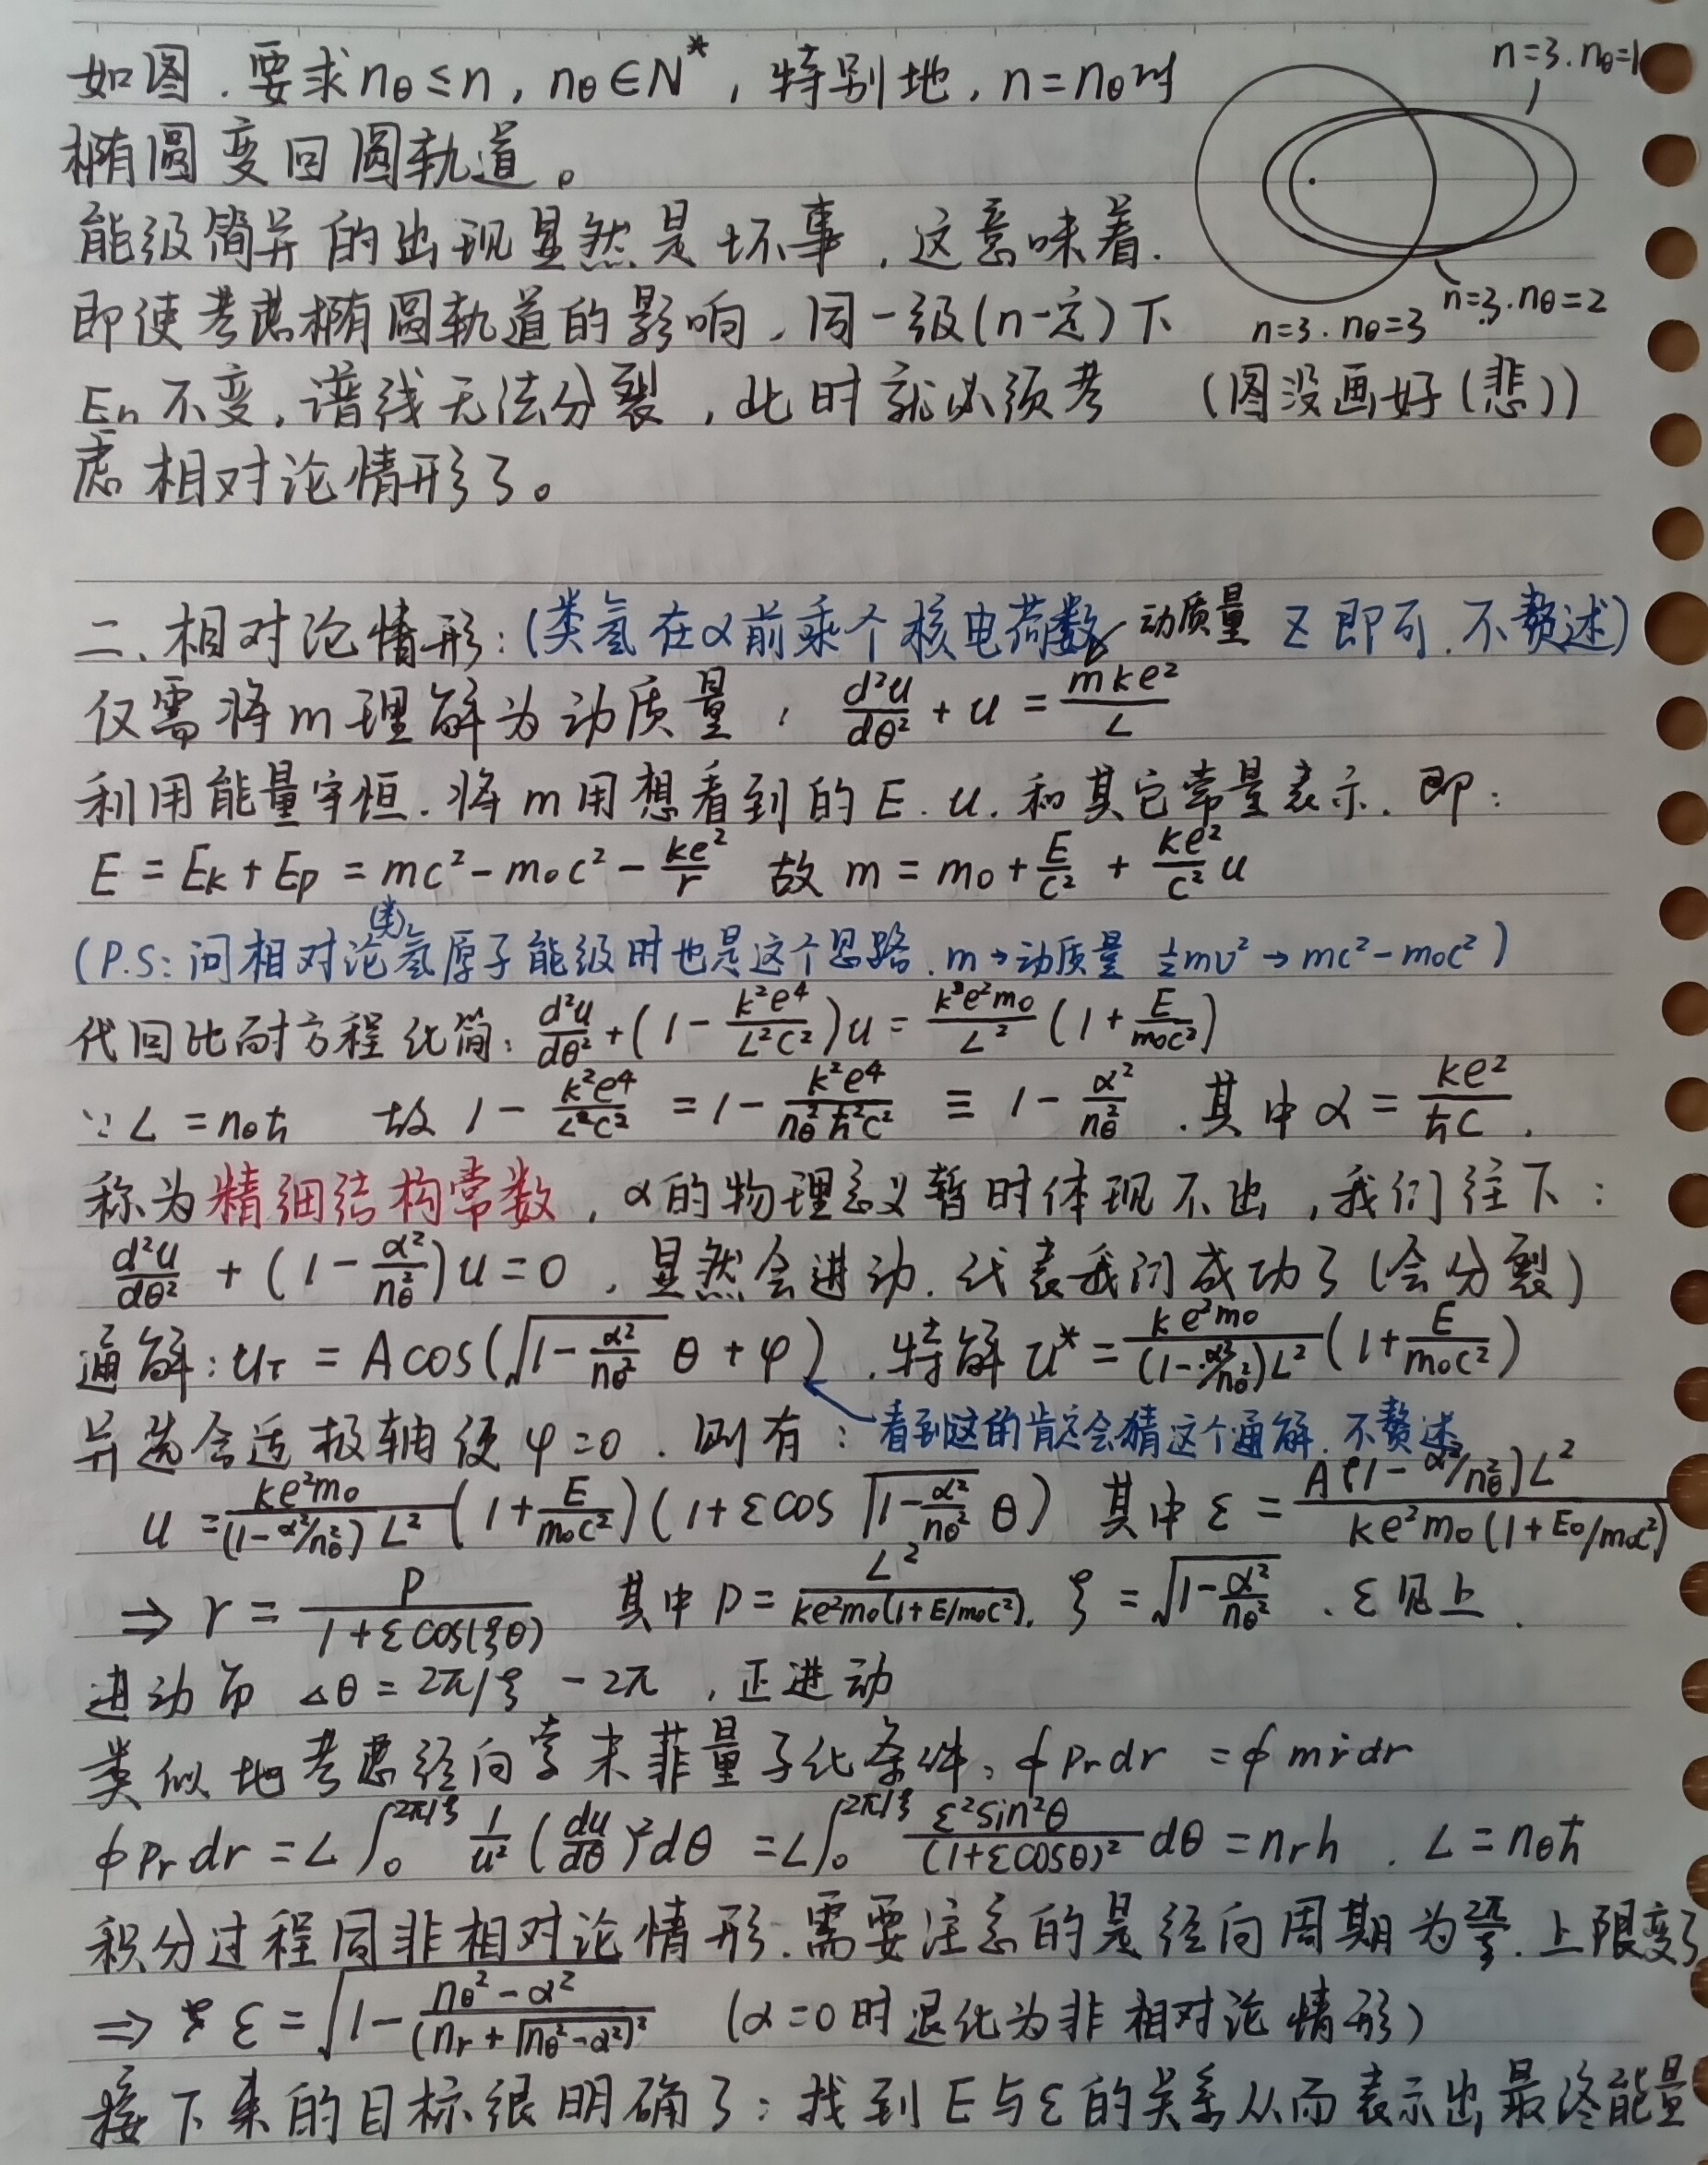 如图.要求nθ≤n,nθ∈N*,特别地,n=nθ时
n=3.nθ=1
椭圆变回圆轨道。
能级简并的出现显然是坏事,这意味着.
即使考虑椭圆轨道的影响,同一级(n一定)下
n=3.nθ=3
n=3.nθ=2
En不变,谱线无法分裂,此时就必须考
(图没画好(悲))
虑相对论情形了。
二、相对论情形:(类氢在α前乘个核电荷数 Z即可.不赘述)
动质量
仅需将m理解为动质量, d²u/dθ² + u = mke²/L
利用能量守恒.将m用想看到的E.u.和其它常量表示.即:
E = Ek + Ep = mc² - m₀c² - ke²/r 故 m = m₀ + E/c² + ke²/c² u
(P.S:问相对论(类)氢原子能级时也是这个思路.m→动质量 ½mv²→mc²-m₀c²)
代回比耐方程化简: d²u/dθ² + (1 - k²e⁴/L²c²)u = ke²m₀/L² (1 + E/m₀c²)
∵L = nθħ 故 1 - k²e⁴/L²c² = 1 - k²e⁴/nθ²ħ²c² ≡ 1 - α²/nθ² .其中α = ke²/ħc .
称为精细结构常数,α的物理意义暂时体现不出,我们往下:
d²u/dθ² + (1 - α²/nθ²)u = 0 ,显然会进动.代表我们成功了(会分裂)
通解:u_T = Acos(√(1-α²/nθ²) θ + φ) .特解 u* = ke²m₀/((1-α²/nθ²)L²) (1 + E/m₀c²)
并选合适极轴使φ=0.则有:
看到这的肯定会猜这个通解.不赘述
u = ke²m₀/((1-α²/nθ²)L²) (1 + E/m₀c²)(1 + εcos √(1-α²/nθ²) θ) 其中ε = A(1-α²/nθ²)L²/(ke²m₀(1+E₀/m₀c²))
⇒ r = P/(1+εcos(ξθ)) 其中P = L²/(ke²m₀(1+E/m₀c²)). ξ = √(1-α²/nθ²) .ε见上.
进动角 Δθ = 2π/ξ - 2π ,正进动
类似地考虑径向索末菲量子化条件:∮Prdr = ∮mṙdr
∮Prdr = L∫₀^(2π/ξ) 1/u² (du/dθ)²dθ = L∫₀^(2π/ξ) ε²sin²θ/(1+εcosθ)² dθ = nrh . L = nθħ
积分过程同非相对论情形.需要注意的是径向周期为2π/ξ.上限变了
⇒ ε = √(1 - (nθ²-α²)/(nr+√(nθ²-α²))²) (α=0时退化为非相对论情形)
接下来的目标很明确了:找到E与ε的关系从而表示出最终能量